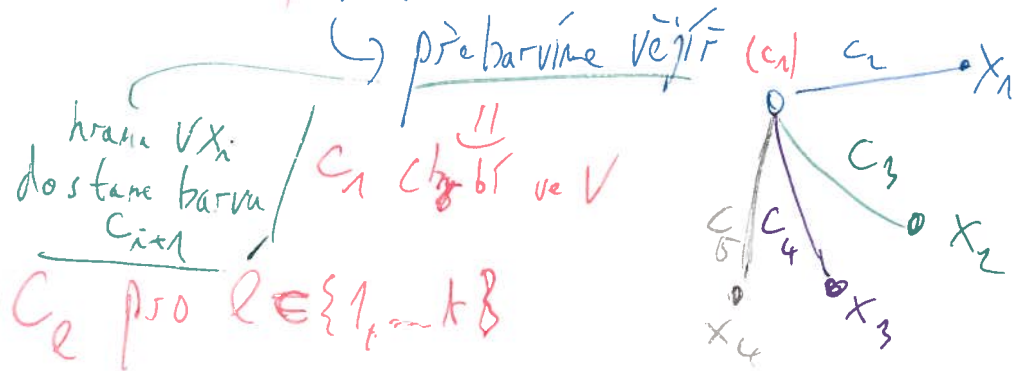 ↳ přebarvíme vějíř (c₁) c₂ x₁
hrana vxᵢ
dostane barvu
cᵢ₊₁
c₁ chybí ve v
c₃ x₂
c₅ c₄
x₃
x₄
cₗ pro l ∈ {1, ... k}